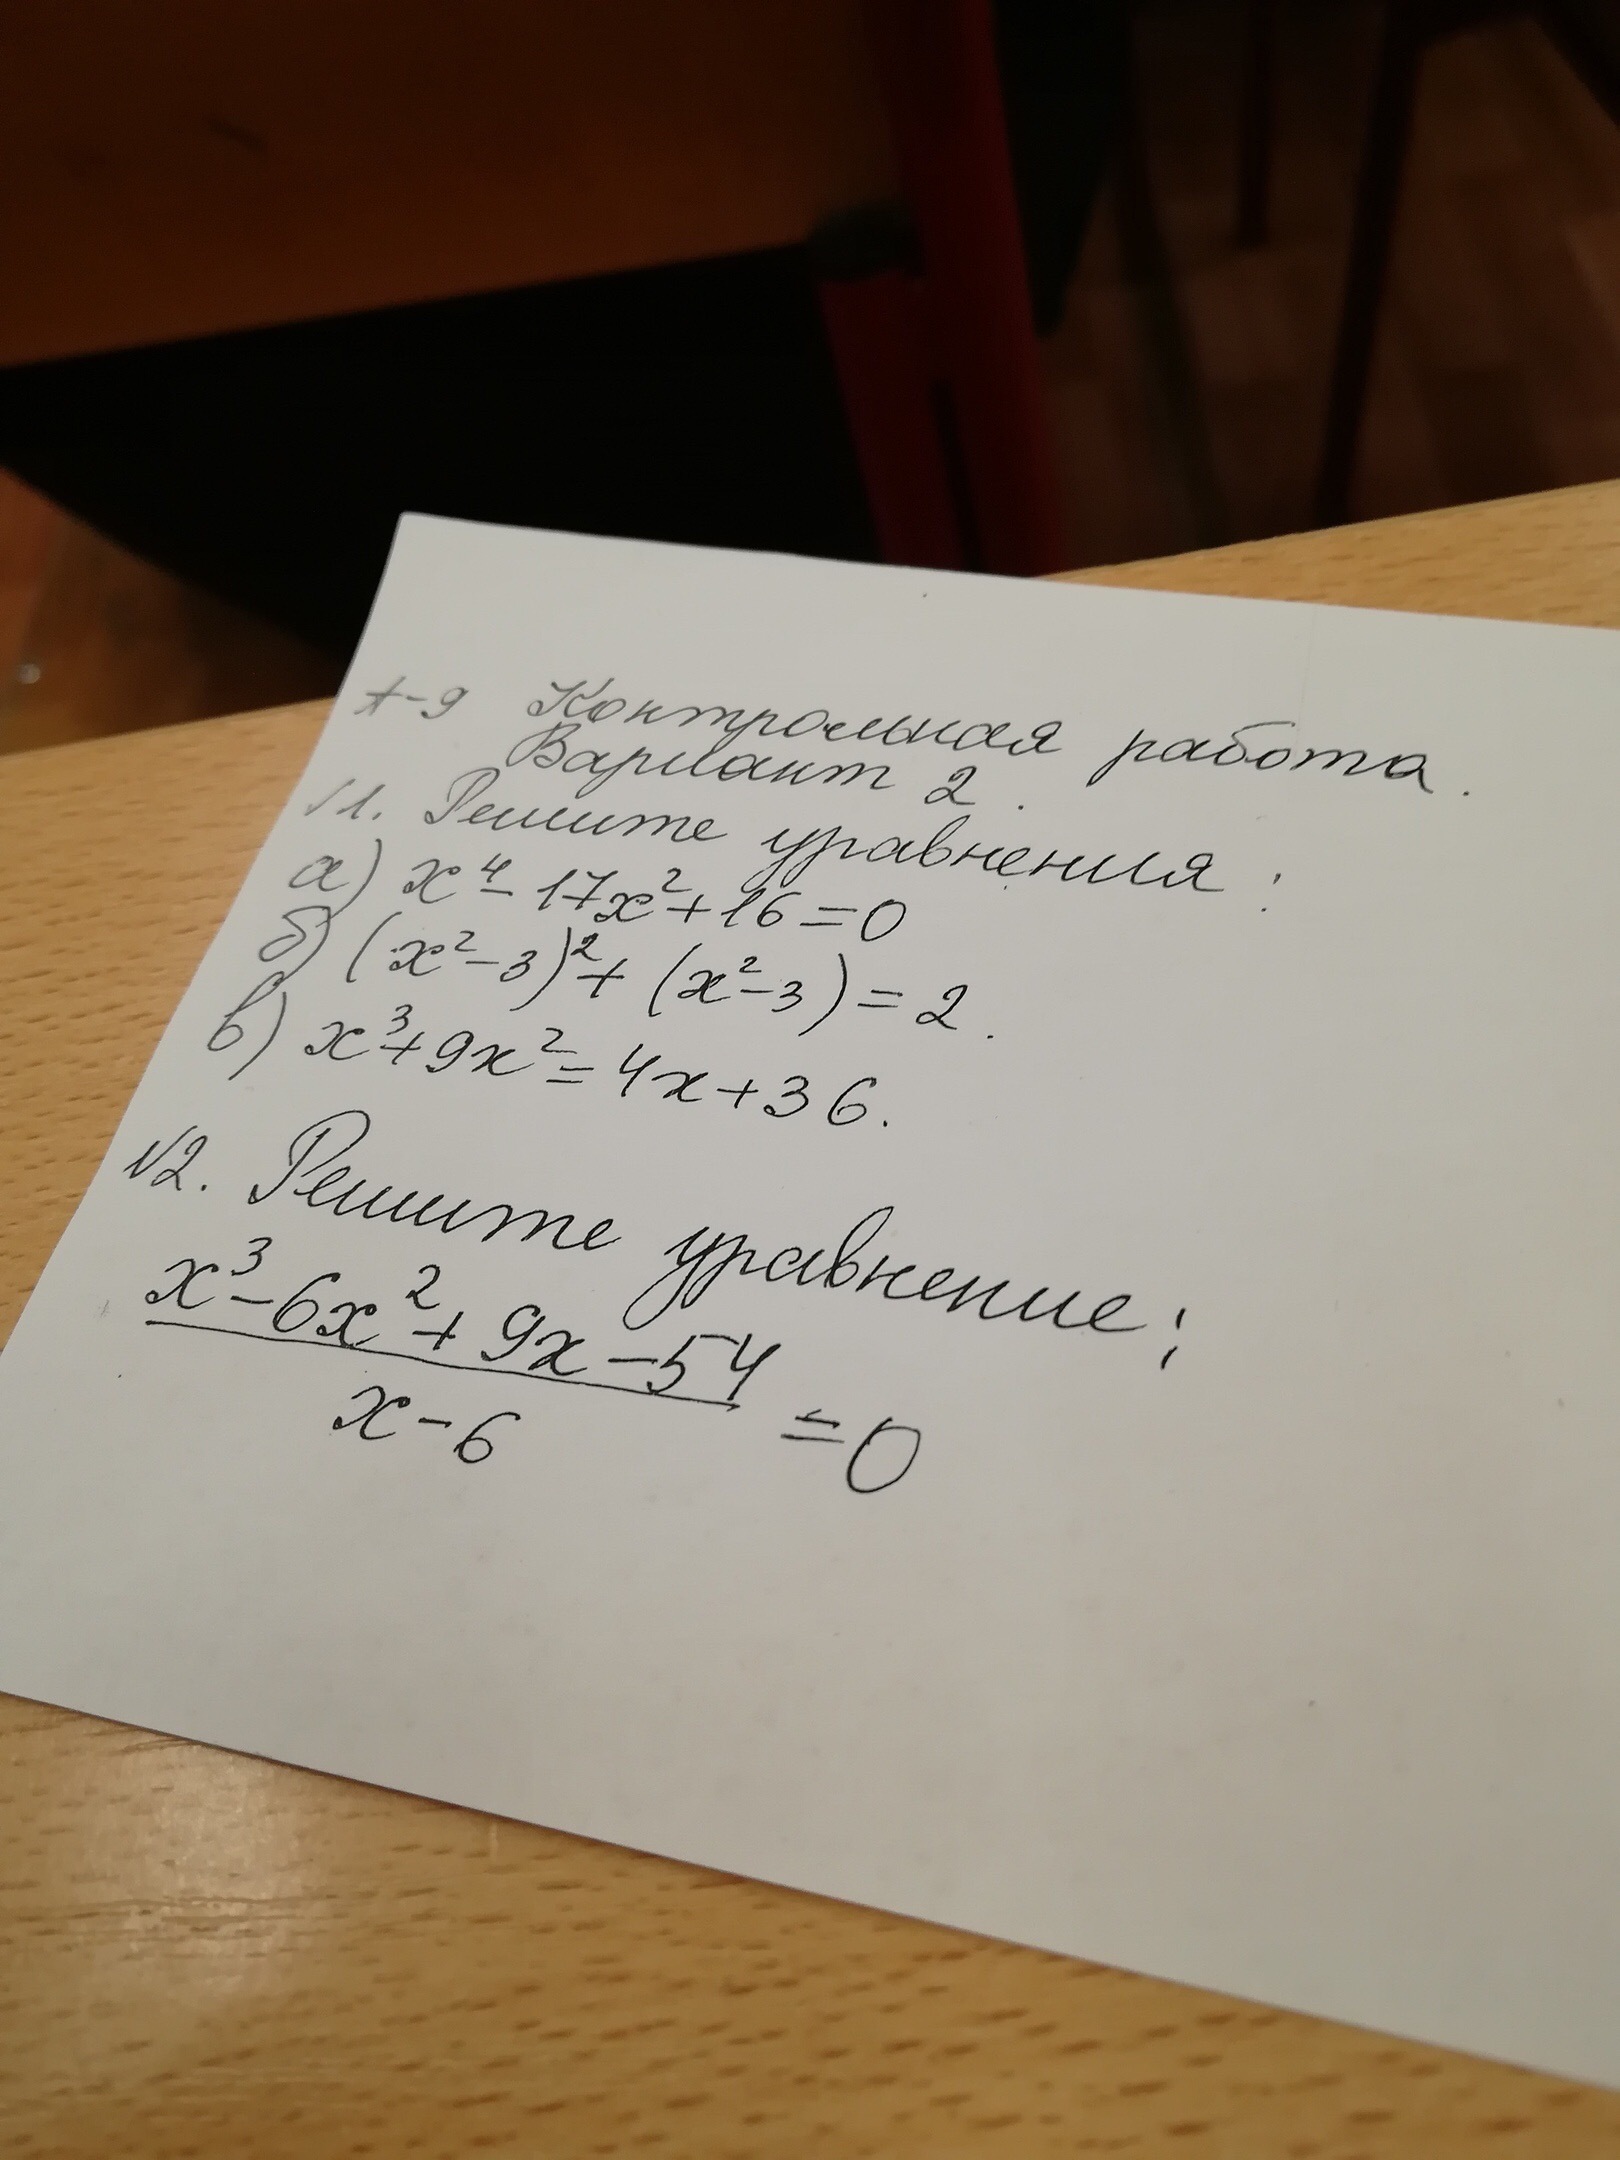 А-9 Контрольная работа.
Вариант 2.
№1. Решите уравнения:
а) x⁴ - 17x² + 16 = 0
б) (x² - 3)² + (x² - 3) = 2.
в) x³ + 9x² = 4x + 36.
№2. Решите уравнение:
x³ - 6x² + 9x - 54
x - 6
= 0